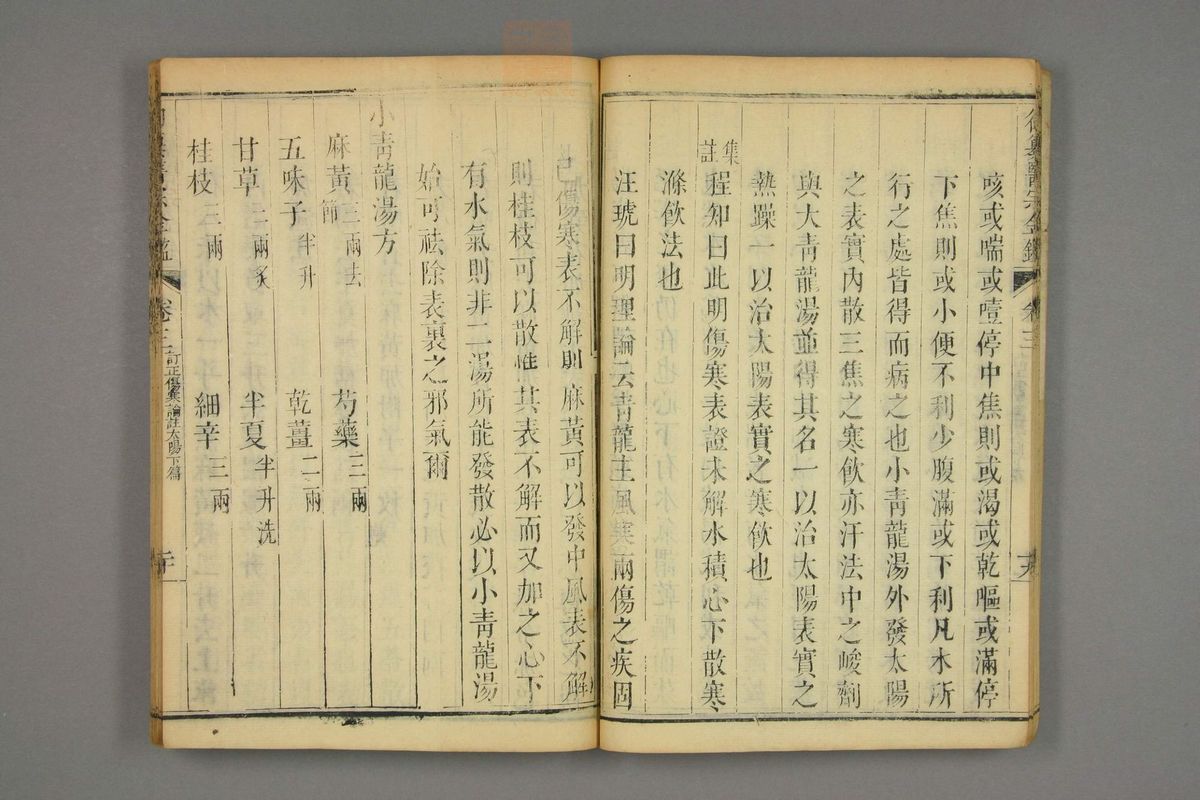 咳或喘或噎停中焦則或渴或乾嘔或滿停
下焦則或小便不利少腹滿或下利凡水所
行之處皆得而病之也小青龍湯外發太陽
之表實內散三焦之寒飲亦汗法中之峻劑
與大青龍湯並得其名一以治太陽表實之
熱躁一以治太陽表實之寒飲也
集註
程知曰此明傷寒表證未解水積心下散寒
滌飲法也
汪琥曰明理論云青龍主風寒兩傷之疾固
已傷寒表不解則麻黃可以發中風表不解
則桂枝可以散惟其表不解而又加之心下
有水氣則非二湯所能發散必以小青龍湯
始可祛除表裏之邪氣爾
小青龍湯方
麻黃三兩去節 芍藥三兩
五味子半升 乾薑二兩
甘草二兩炙 半夏半升洗
桂枝三兩 細辛三兩
卷三 訂正傷寒論註太陽下篇